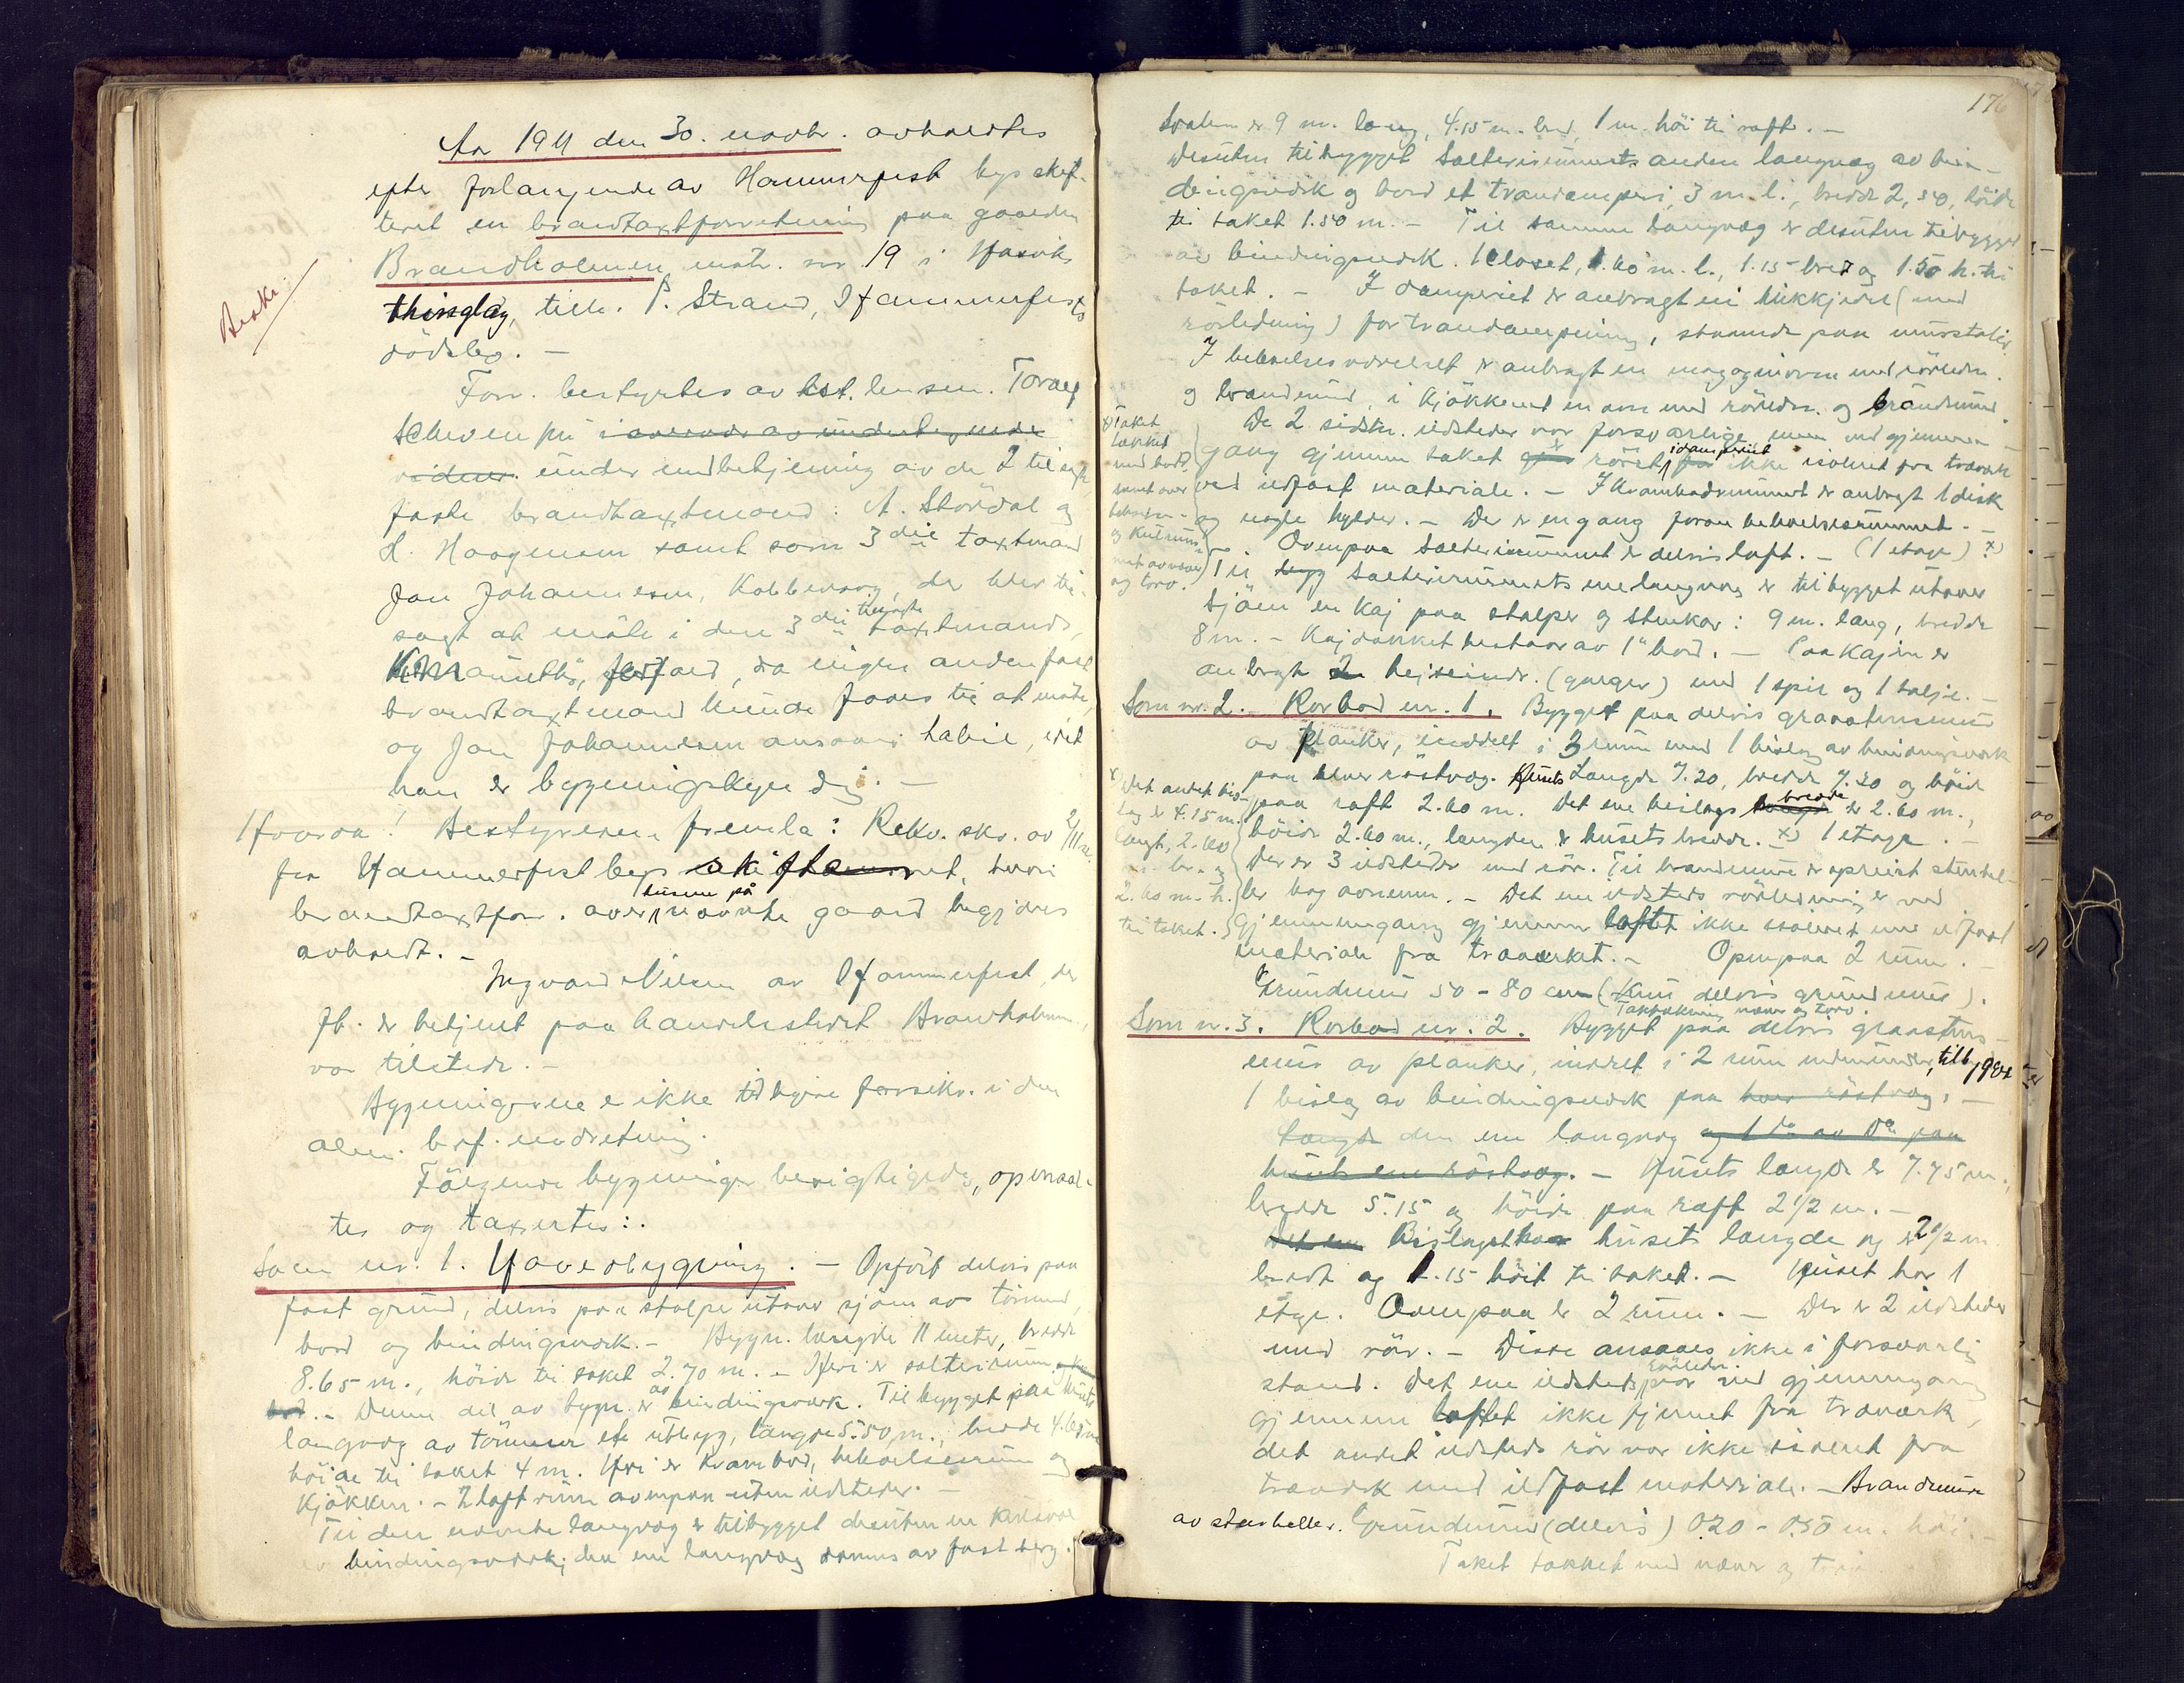 Aar 1911 den 30. novbr. avholdtes
efter forlangende av Hammerfest bys skif-
teret en brandtaxtforretning paa gaarden
Brandholmen matr. nr 19 i Hasviks
thinglag, tilh. P. Strand, Hammerfests
dödsbo. —
Beskr.
Forr. bestyrtes av lensm. Toralf
Scheven
under medbetjening av de 2
faste brandtaxtmænd: A. Stördal og
H. Haagensen samt som 3die taxtmand
Jan Johannesen, Kobbevaag, der blev til-
sagt at möte i den 3die taxtmands,
forfald, da ingen anden fast
brandtaxtmand kunde faaes til at möte,
og Jan Johannesen ansaaes habil, idet
han er bygningskyndig. —
Hvorda! Bestyreren fremla: Rekv. skr. av 2/11
fra Hammerfest bys skifteret, hvori
brandtaxtforr. over husene på nævnte gaard begjæres
avholdt. —
Ingvard Nilsen av Hammerfest, der
f.t. er betjent paa handelsstedet Brandholmen,
var tilstede. —
Bygningerne er ikke tidligere forsikr. i den
alm. brf. indretning.
Fölgende bygninger besigtigedes, opmaal-
tes og taxertes:.
Som nr. 1. Hovedbygning. — Opfört delvis paa
fast grund, delvis paa stolpe utover sjöen av tömmer,
bord og bindingsverk. — Bygn. længde 11 meter, bredde
8.65 m., höide til taket 2.70 m. — Heri er salterirum
— Denne del av bygn. er av bindingsverk. Til bygget paa husets
langvæg av tömmer et utbyg, længde 5.50 m., bredde 4.65 m
höide til taket 4 m. Heri er krambod, beboelsesrum og
kjökken. — 2 loftsrum ovenpaa uten ildsteder. —
Til den nævnte langvæg er tilbygget desuten en
bindingsverk; den ene langvæg dannes av fast berg.
176
Svalen er 9 m. lang, 4.15 m. bred, 1 m. höi til raft. —
Desuten tilbygget salterirummets anden langvæg av bin-
dingsverk og bord et trandamperi, 3 m. l., bredde 2,50, höide
til taket 1.50 m. — Til samme langvæg er desuten tilbygget
av bindingsverk. 1 closet, 1.60 m. l., 1.15 bred og 1.50 h. til
taket. — I damperiet er anbragt en kjedel (med
rörledning) for trandampning, staaende paa
I beboelsesværelset er anbragt en magasinovn med rörledn.
og brandmur, i kjökkenet en ovn med rörledn. og brandmur.
De 2 sidstn. ildsteder var forsvarlige, men ved gjennem-
gang gjennem taket er röret i damperiet ikke isoleret fra træverk
ved ildfast materiale. — I krambodrummet er anbragt 1 disk
og nogle hylder. — Der er en gang foran beboelsesrummet. —
Ovenpaa salterirummet er delvis loft. — (1 etage) x)
x) Taket
tækket
med bord,
samt over
og
met av næver
og torv.
Til salterirummets ene langvæg er tilbygget utover
sjöen en kaj paa stolper og stenkar: 9 m. lang, bredde
8 m. — Kajdækket bestaar av 1" bord. — Paa kajen er
anbragt heiseindr. (galger) med 1 spil og 1 talje. —
Som nr. 2. Rorbod nr. 1. Bygget paa delvis graastensmur
av planker, inddelt i 3 rum med 1 bislag av bindingsverk
paa hver röstvæg. Husets Længde 7.20, bredde 7.20 og höide
paa raft 2.60 m. Det ene beislags bredde er 2.60 m.,
höide 2.60 m., længden er husets bredde. x) 1 etage. —
x) Det andet bis-
lag er 4.15 m.
langt, 2.60
br. og
2.60 m. h.
til taket.
Der er 3 ildsteder med rör. Til brandmur er opreist stenhel-
ler bag ovnene. — Det ene ildsteds rörledning er ved
gjennemgang gjennem loftet ikke isoleret med ildfast
materiale fra træverket. — Ovenpaa 2 rum. —
Grundmur 50 - 80 cm (Kun delvis grundmur).
Taktækning næver og torv.
Som nr. 3. Rorbod nr. 2. Bygget paa delvis graastens-
mur av planker, inredet i 2 rum tilbygget
1 bislag av bindingsverk paa hver röstvæg, —
Længde den ene langvæg og 1 do av do paa
husets ene röstvæg. — Husets længde er 7.75 m.,
bredde 5.15 og höide paa raft 2 1/2 m. —
Det ene Bislaget har husets længde og er 2 1/2 m
bredt og 1.15 höit til taket. — Huset har 1
etge. Ovenpaa er 2 rum. — Der er 2 ildsteder
med rör. — Disse ansaaes ikke i forsvarlig
stand. Det ene ildsteds rörledn. var ved gjennemgang
gjennem loftet ikke fjernet fra træverk,
det andet ildsteds rör var ikke isoleret fra
træverk med ildfast materiale. — Brandmure
av stenheller. Grundmur (delvis) 0.20 - 0.50 m. höi.
Taket tækket med næver og torv